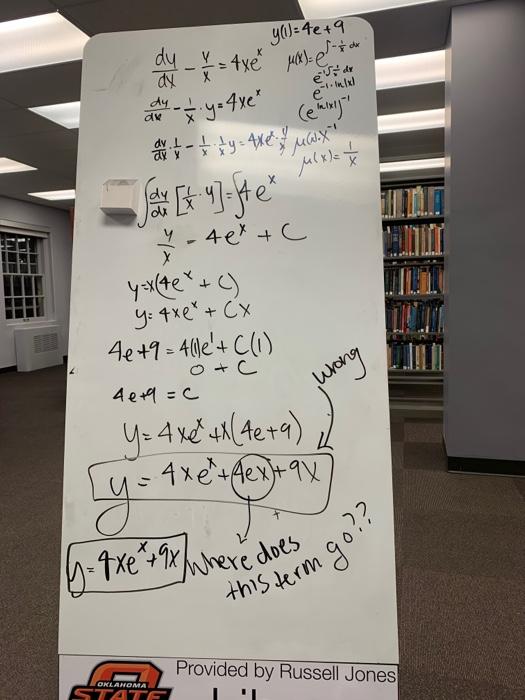 y(1)=4e+9
dy/dx - y/x = 4xeˣ
μ(x)=e^∫-1/x dx
e^-1∫1/x dx
dy/dx - 1/x · y = 4xeˣ
e^-1·ln|x|
(e^ln|x|)^-1
dy/dx · 1/x - 1/x · 1/x y = 4xeˣ · 1/x
μ(x)=x^-1
μ(x)=1/x
∫dy/dx [1/x · y] = ∫4eˣ
y/x = 4eˣ + C
y=x(4eˣ + C)
y= 4xeˣ + Cx
4e+9 = 4(1)e¹ + C(1)
0 + C
wrong
4e+9 = C
y = 4xeˣ +x(4e+9)
y = 4xeˣ+4ex+9x
y=4xeˣ+9x
Where does
this term go??
Provided by Russell Jones
OKLAHOMA
STATE